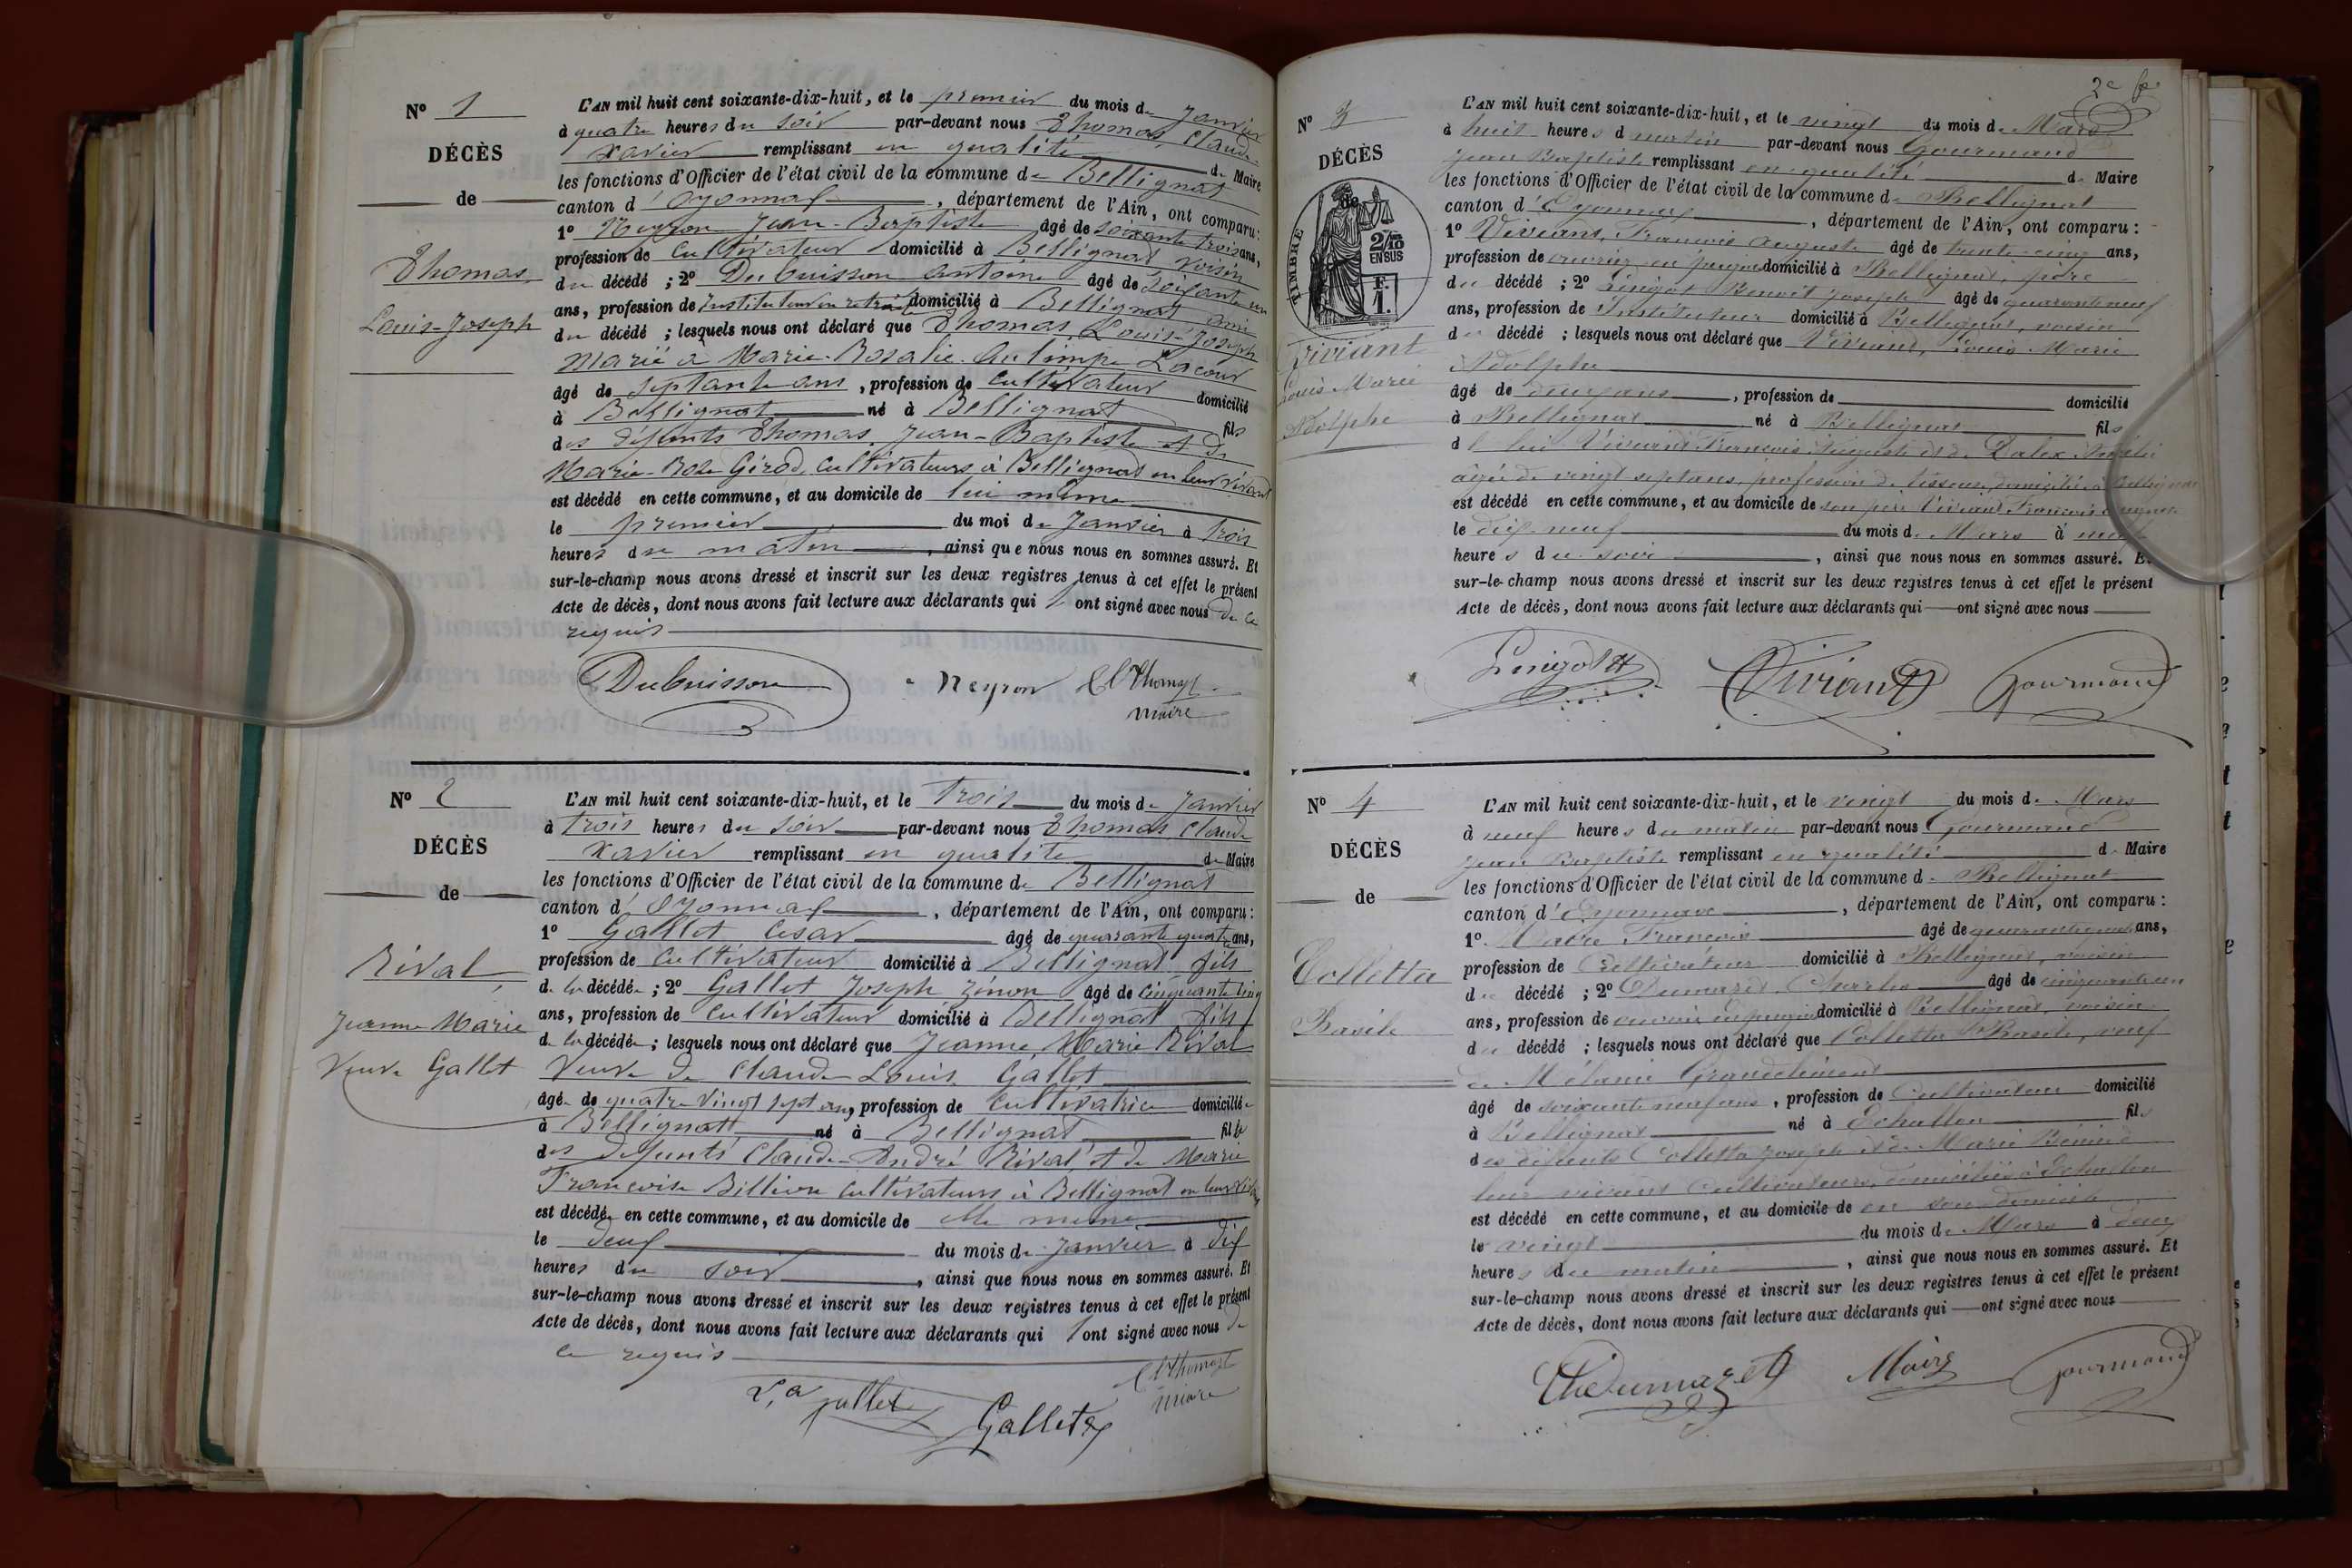 N° 1
DÉCÈS
de
Thomas,
Louis-Joseph
L'AN mil huit cent soixante-dix-huit, et le premier du mois de Janvier
à quatre heures du soir par-devant nous Thomas, Claude
Xavier remplissant en qualité de Maire
les fonctions d'Officier de l'état civil de la commune de Bellignat
canton d'Oyonnax, département de l'Ain, ont comparu :
1° Neyron Jean-Baptiste âgé de soixante trois ans,
profession de Cultivateur domicilié à Bellignat voisin
du décédé ; 2° Dubuisson Antoine âgé de soixante un
ans, profession de Instituteur en retraite domicilié à Bellignat ami
du décédé ; lesquels nous ont déclaré que Thomas, Louis-Joseph
marié à Marie-Rosalie Lacour
âgé de septante ans, profession de Cultivateur domicilié
à Bellignat né à Bellignat fils
des défunts Thomas, Jean-Baptiste et de
Marie-Rose Girod, Cultivateurs à Bellignat en leur vivant
est décédé en cette commune, et au domicile de lui même
le premier du moi de Janvier à trois
heures du matin, ainsi que nous nous en sommes assuré. Et
sur-le-champ nous avons dressé et inscrit sur les deux registres tenus à cet effet le présent
Acte de décès, dont nous avons fait lecture aux déclarants qui l'ont signé avec nous de ce
requis
Dubuisson Neyron Cl Thomas
maire
N° 2
DÉCÈS
de
Rival,
Jeanne-Marie
Veuve Gallet
L'AN mil huit cent soixante-dix-huit, et le trois du mois de Janvier
à trois heures du soir par-devant nous Thomas Claude
Xavier remplissant en qualité de Maire
les fonctions d'Officier de l'état civil de la commune de Bellignat
canton d'Oyonnax, département de l'Ain, ont comparu :
1° Gallet César âgé de quarante quatre ans,
profession de Cultivateur domicilié à Bellignat fils
de la décédée ; 2° Gallet Joseph Zénon âgé de cinquante cinq
ans, profession de Cultivateur domicilié à Bellignat fils
de la décédée ; lesquels nous ont déclaré que Jeanne, Marie Rival
Veuve de Claude Louis Gallet
âgée de quatre vingt sept ans, profession de Cultivatrice domicilié
à Bellignat né à Bellignat fille
des défunts Claude-André Rival et de Marie
Françoise Billion Cultivateurs à Bellignat en leur vivant
est décédée en cette commune, et au domicile de elle même
le deux du mois de Janvier à dix
heures du soir, ainsi que nous nous en sommes assuré. Et
sur-le-champ nous avons dressé et inscrit sur les deux registres tenus à cet effet le présent
Acte de décès, dont nous avons fait lecture aux déclarants qui l'ont signé avec nous de
ce requis
gallet Gallet Cl Thomas
maire
2e fe
N° 3
DÉCÈS
de
TIMBRE
2/10
EN SUS
F.
1.
Viviant
Louis Marie
Adolphe
L'AN mil huit cent soixante-dix-huit, et le vingt du mois de Mars
à huit heures d matin par-devant nous Gourmand
Jean Baptiste remplissant en qualité de Maire
les fonctions d'Officier de l'état civil de la commune de Bellignat
canton d'Oyonnax, département de l'Ain, ont comparu :
1° Viviant, François Auguste âgé de trente cinq ans,
profession de ouvrier en peigne domicilié à Bellignat, père
du décédé ; 2° Lingot Benoit Joseph âgé de quarante neuf
ans, profession de Instituteur domicilié à Bellignat, voisin
du décédé ; lesquels nous ont déclaré que Viviant, Louis Marie
Adolphe
âgé de deux ans, profession de domicilié
à Bellignat né à Bellignat fils
d Viviant François Auguste et de Dalex
âgée de vingt sept ans, profession de tisseuse, domiciliée à Bellignat
est décédé en cette commune, et au domicile de son père Viviant François Auguste
le dix-neuf du mois de Mars à neuf
heures du soir, ainsi que nous nous en sommes assuré. Et
sur-le-champ nous avons dressé et inscrit sur les deux registres tenus à cet effet le présent
Acte de décès, dont nous avons fait lecture aux déclarants qui ont signé avec nous
Lingot Viviant Gourmand
N° 4
DÉCÈS
de
Colletta
Basile
L'AN mil huit cent soixante-dix-huit, et le vingt du mois de Mars
à neuf heures du matin par-devant nous Gourmand
Jean Baptiste remplissant en qualité de Maire
les fonctions d'Officier de l'état civil de la commune de Bellignat
canton d'Oyonnax, département de l'Ain, ont comparu :
1° Maire François âgé de ans,
profession de Cultivateur domicilié à Bellignat, voisin
du décédé ; 2° Dumazet Charles âgé de cinquante un
ans, profession de ouvrier en peigne domicilié à Bellignat, voisin
du décédé ; lesquels nous ont déclaré que Colletta Basile, veuf
de Mélanie Grandclément
âgé de soixante neuf ans, profession de Cultivateur domicilié
à Bellignat né à Echallon fils
des défunts Colletta Joseph et de Marie
leur vivant cultivateurs, domiciliés à Echallon
est décédé en cette commune, et au domicile de en son domicile
le vingt du mois de Mars à deux
heures du matin, ainsi que nous nous en sommes assuré. Et
sur-le-champ nous avons dressé et inscrit sur les deux registres tenus à cet effet le présent
Acte de décès, dont nous avons fait lecture aux déclarants qui ont signé avec nous
Ch Dumazet Maire Gourmand